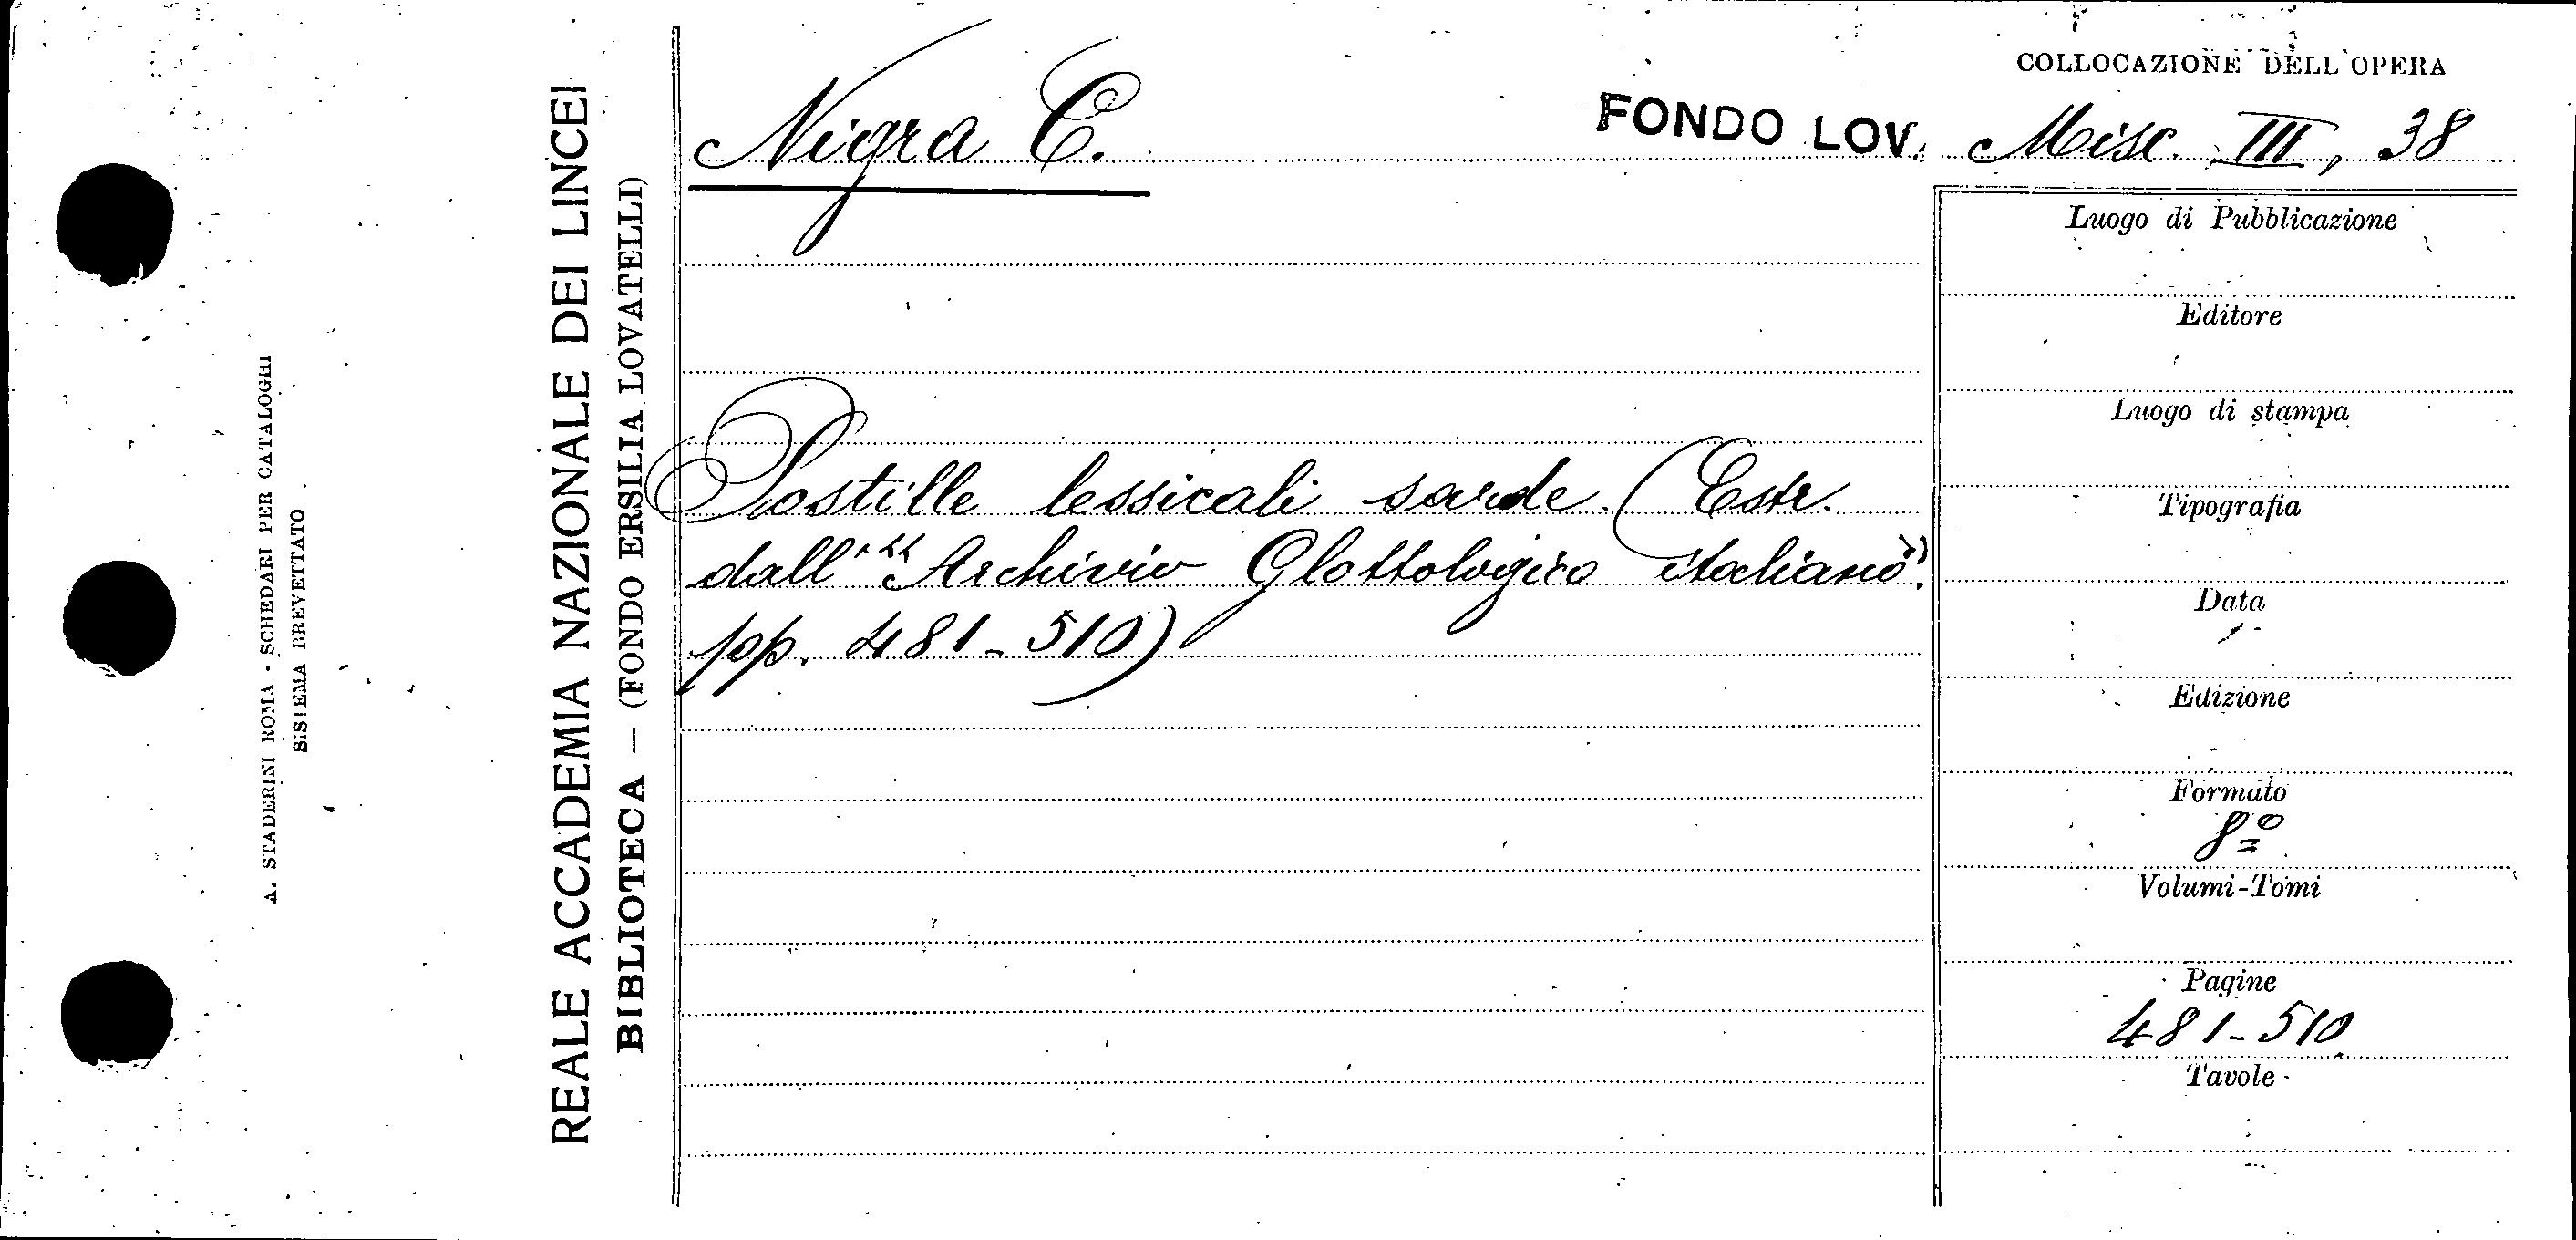 A. STADERINI ROMA - SCHEDARI PER CATALOGHI
SISTEMA BREVETTATO
REALE ACCADEMIA NAZIONALE DEI LINCEI
BIBLIOTECA — (FONDO ERSILIA LOVATELLI)
COLLOCAZIONE DELL'OPERA
Nigra C.
FONDO LOV. Misc. III, 38
Postille lessicali sarde. (Estr.
dall' "Archivio Glottologico italiano".
pp. 481-510)
Luogo di Pubblicazione
Editore
Luogo di stampa
Tipografia
Data
Edizione
Formato
8º
Volumi-Tomi
Pagine
481-510
Tavole